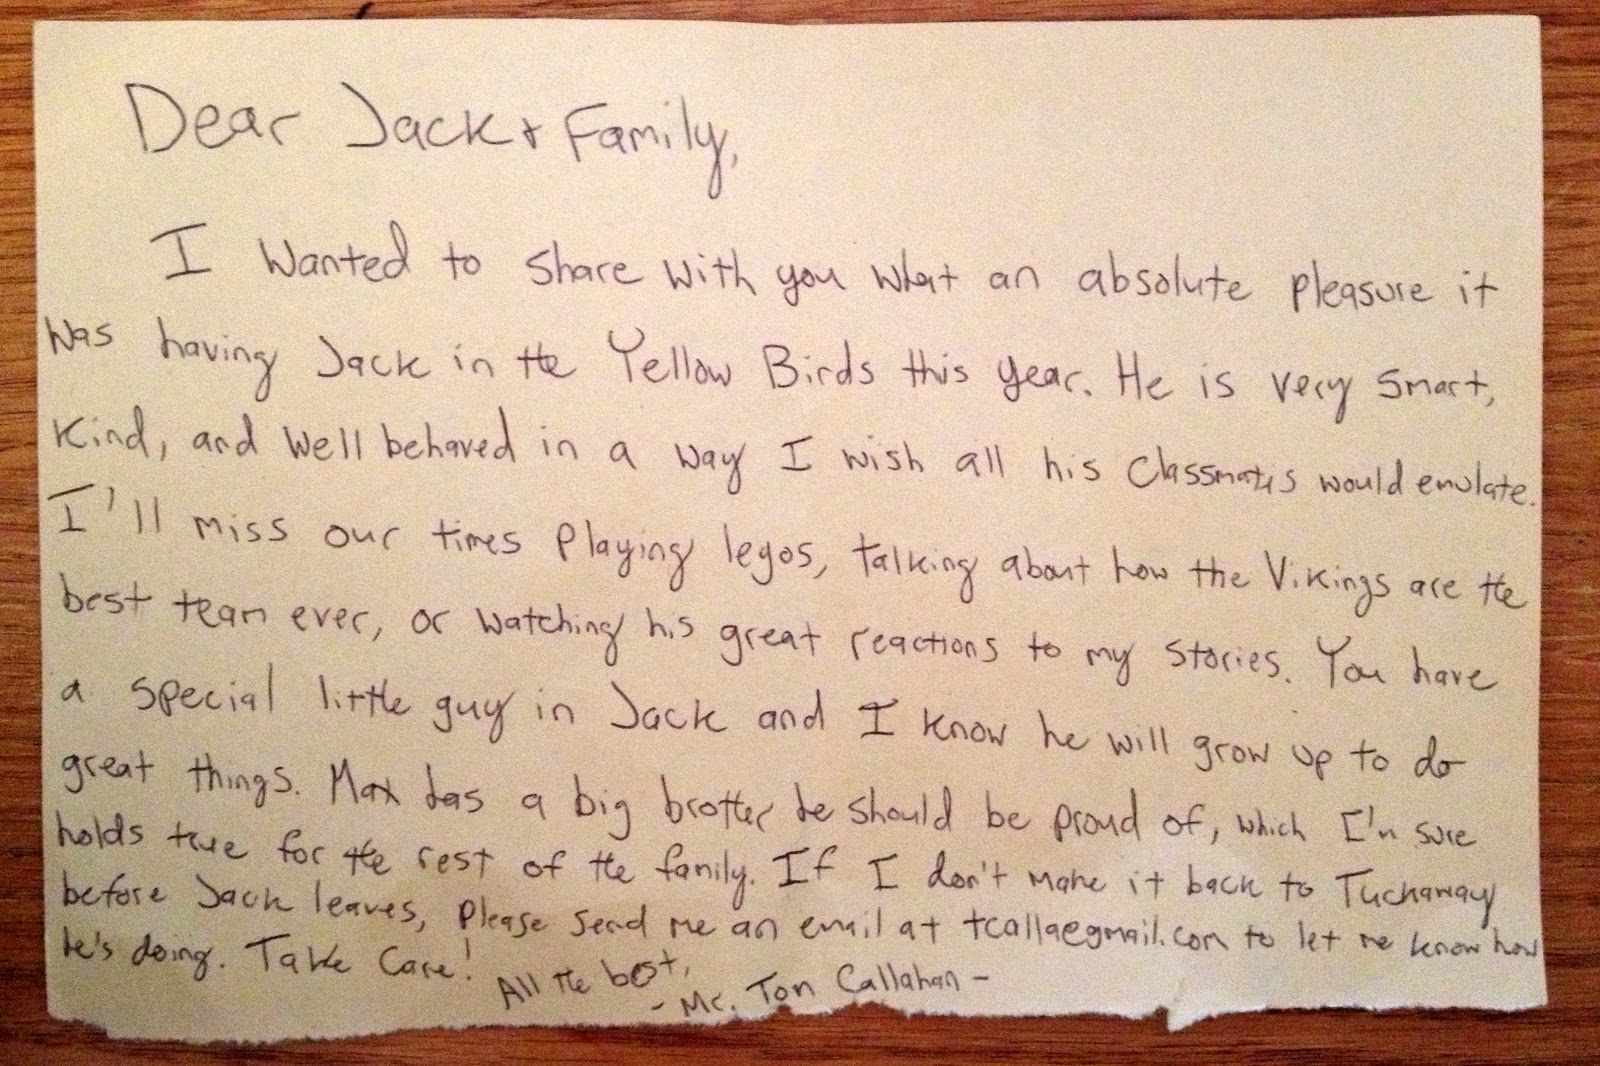 Dear Jack + Family,
I wanted to share with you what an absolute pleasure it
was having Jack in the Yellow Birds this year. He is very smart,
kind, and well behaved in a way I wish all his classmates would emulate.
I'll miss our times playing legos, talking about how the Vikings are the
best team ever, or watching his great reactions to my stories. You have
a special little guy in Jack and I know he will grow up to do
great things. Max has a big brother he should be proud of, which I'm sure
holds true for the rest of the family. If I don't make it back to Tuckaway
before Jack leaves, please send me an email at tcalla@gmail.com to let me know how
he's doing. Take Care!
All the best,
- Mr. Tom Callahan -